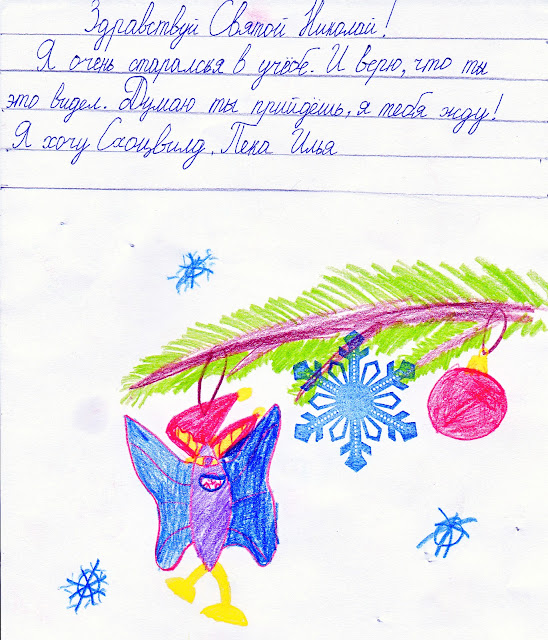 Здравствуй Святой Николай!
Я очень старалсья в учёбе. И верю, что ты
это видел. Думаю ты прийдёшь, я тебя жду!
Я хочу Схоцвилд. Пека Илья